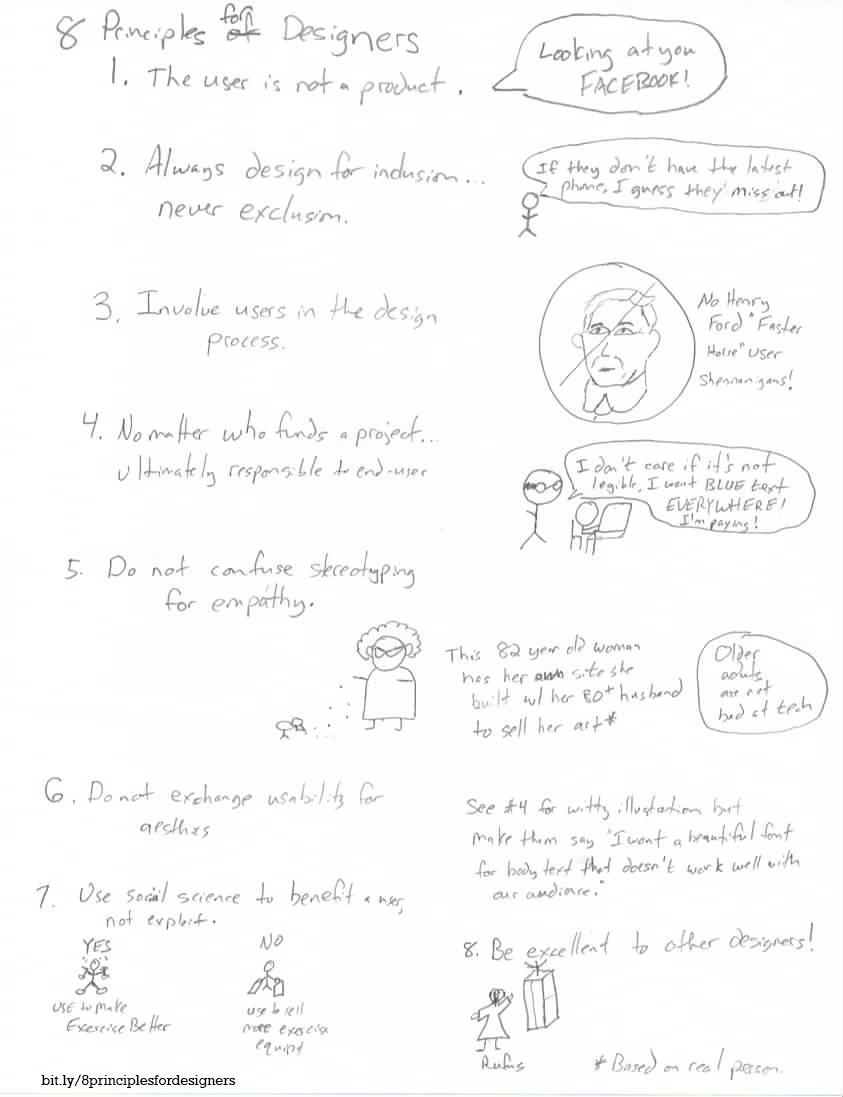 8 Principles for of Designers
1. The user is not a product.
Looking at you
FACEBOOK!
2. Always design for inclusion...
never exclusion.
If they don't have the latest
phone, I guess they miss out!
3. Involve users in the design
process.
No Henry
Ford "Faster
Horse" user
Shennanigans!
4. No matter who funds a project...
ultimately responsible to end-user
I don't care if it's not
legible, I want BLUE text
EVERYWHERE!
I'm paying!
5. Do not confuse stereotyping
for empathy.
This 82 year old woman
has her own site she
built w/ her 80+ husband
to sell her art*
Older
adults
are not
bad at tech
6. Do not exchange usability for
See #4 for witty illustration but
make them say "I want a beautiful font
for body text that doesn't work well with
our audience."
7. Use social science to benefit a user,
not exploit.
YES
USE to make
Exercise Better
NO
use to sell
more exercise
8. Be excellent to other designers!
Rufus
*Based on real person.
bit.ly/8principlesfordesigners